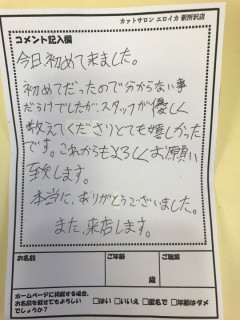 カットサロン エロイカ 新所沢店
コメント記入欄
今日初めて来ました。
初めてだったので分からない事
だらけでしたが、スタッフが優しく
教えてくださりとても嬉しかった
です。これからもよろしくお願い
致します。
本当に、ありがとうございました。
また、来店します。
お名前
ご年齢
ご職業
歳
ホームページに掲載する場合、
お名前を載せてもよろしい
でしょうか?
□はい □いいえ □匿名で □年齢はダメ